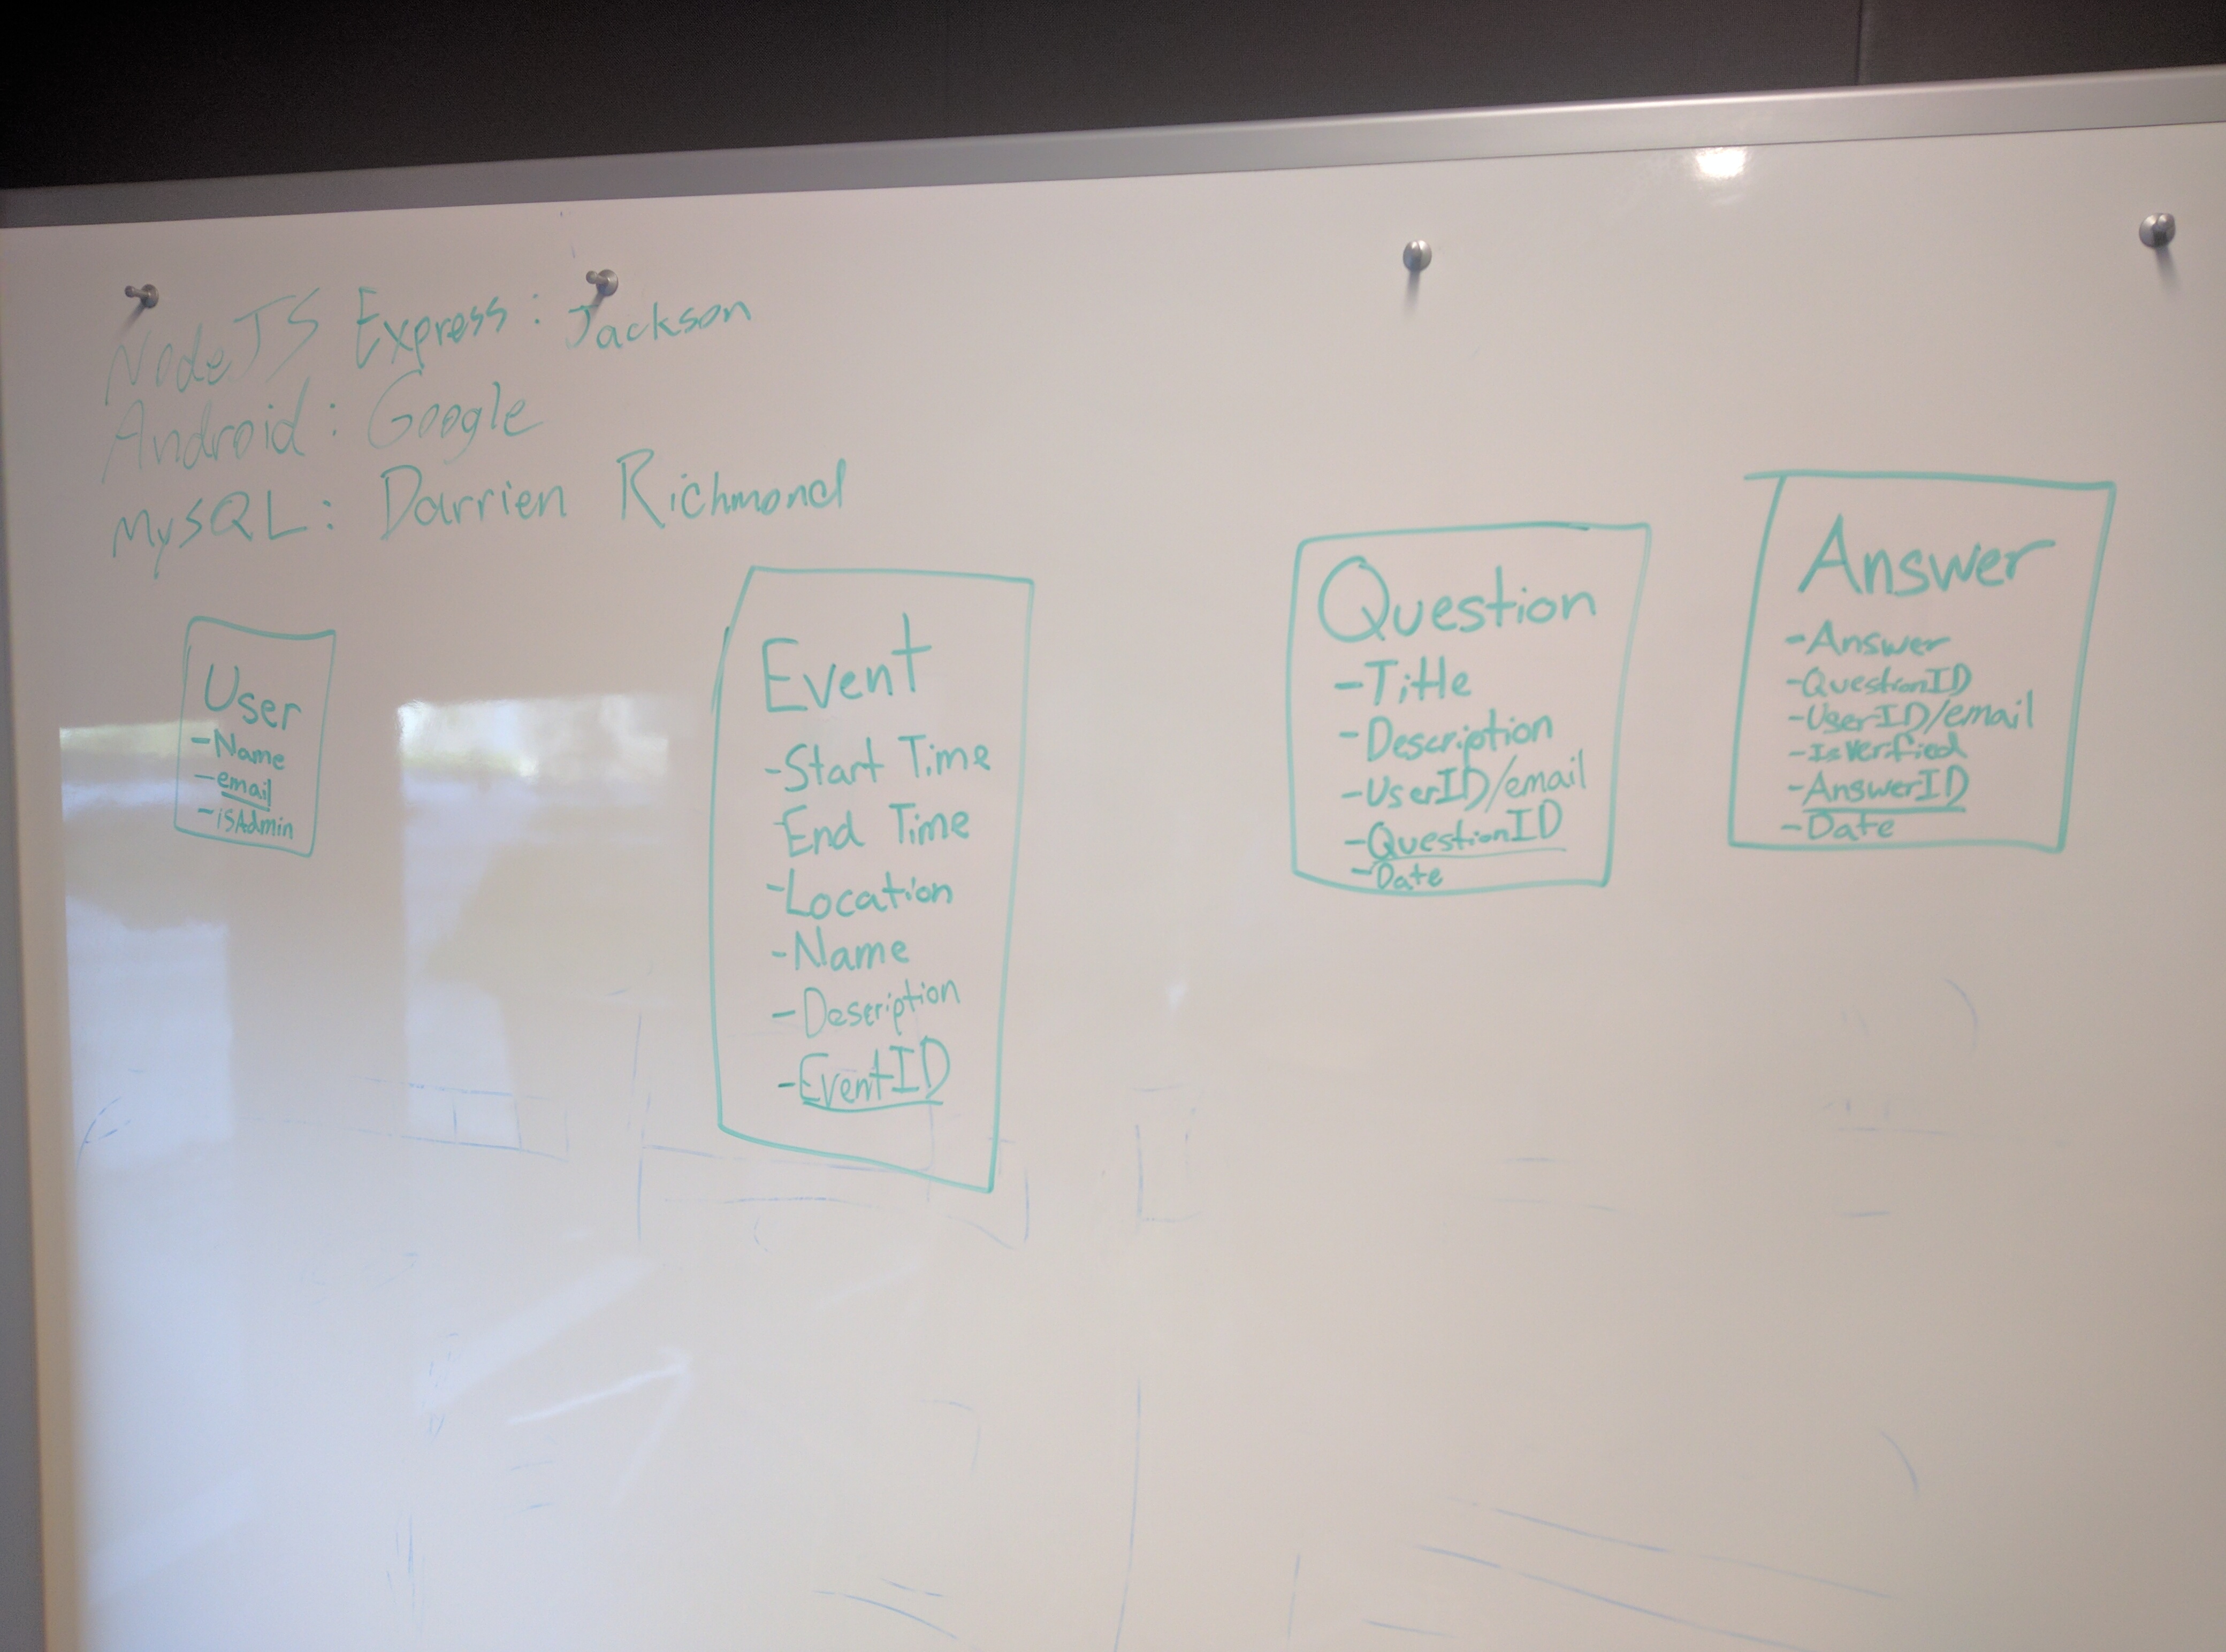 NodeJS Express: Jackson
Android: Google
MySQL: Darrien Richmond
User
-Name
-email
-isAdmin
Event
-Start Time
-End Time
-Location
-Name
-Description
-EventID
Question
-Title
-Description
-UserID/email
-QuestionID
-Date
Answer
-Answer
-QuestionID
-UserID/email
-IsVerified
-AnswerID
-Date